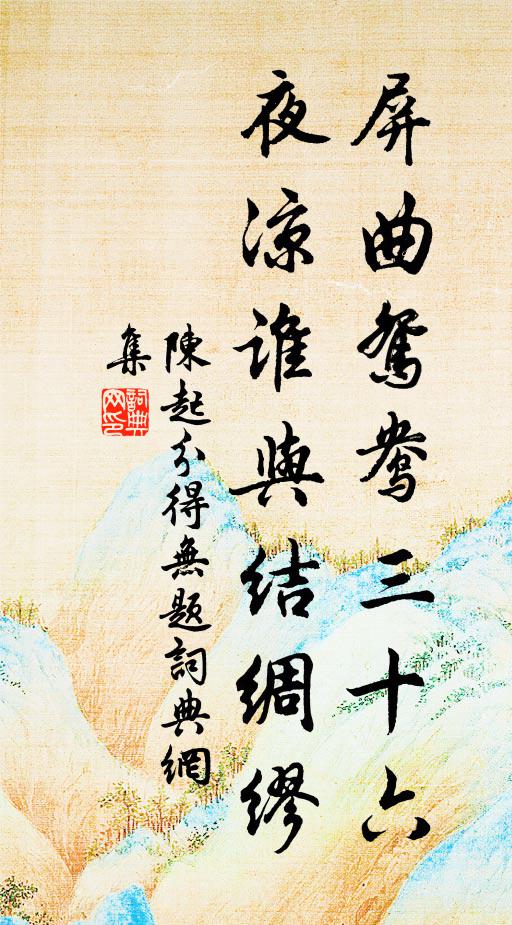 屏曲鴛鴦三十六
夜涼誰與結綢繆
陳起分得無題詞典網
集
詞典網印